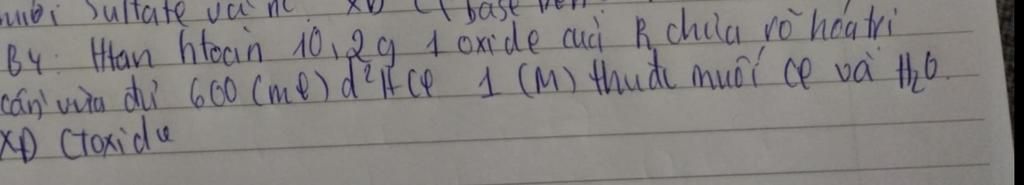 muối Sulfate và nc. XĐ CT base
B4: Htan htoàn 10,2g 1 oxide cuả R chưa rõ hoá trị
cần vừa đủ 600 (ml) d² HCl 1 (M) thu đc muối Cl và H₂O.
XĐ CToxide